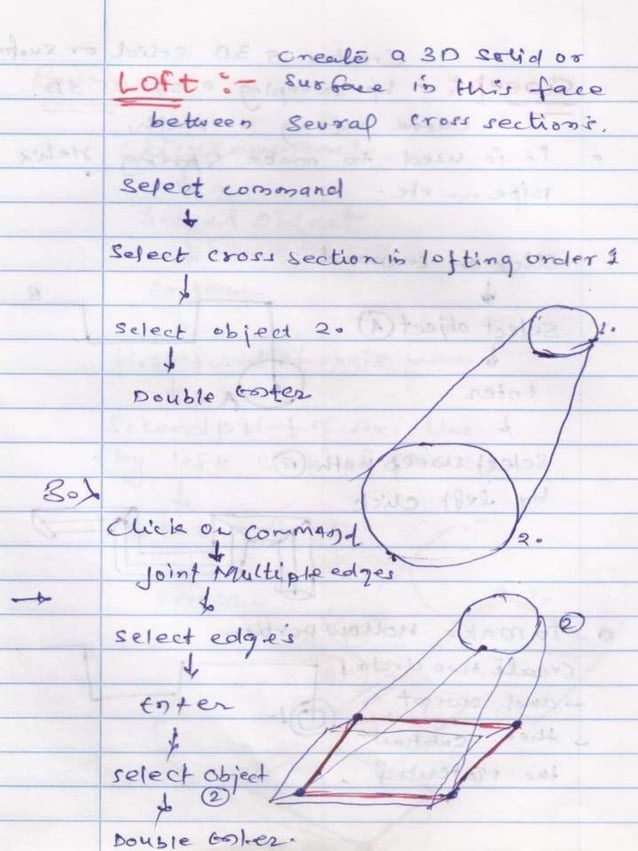 Create a 3D Solid or
Loft :- Surface in this face
between Sevral cross sections.
Select command
Select cross section in lofting order 1
Select object 2.
1.
Double Enter
Box
Click on command
2.
Joint Multiple edges
Select edges
②
Enter
select object
②
Double Enter.